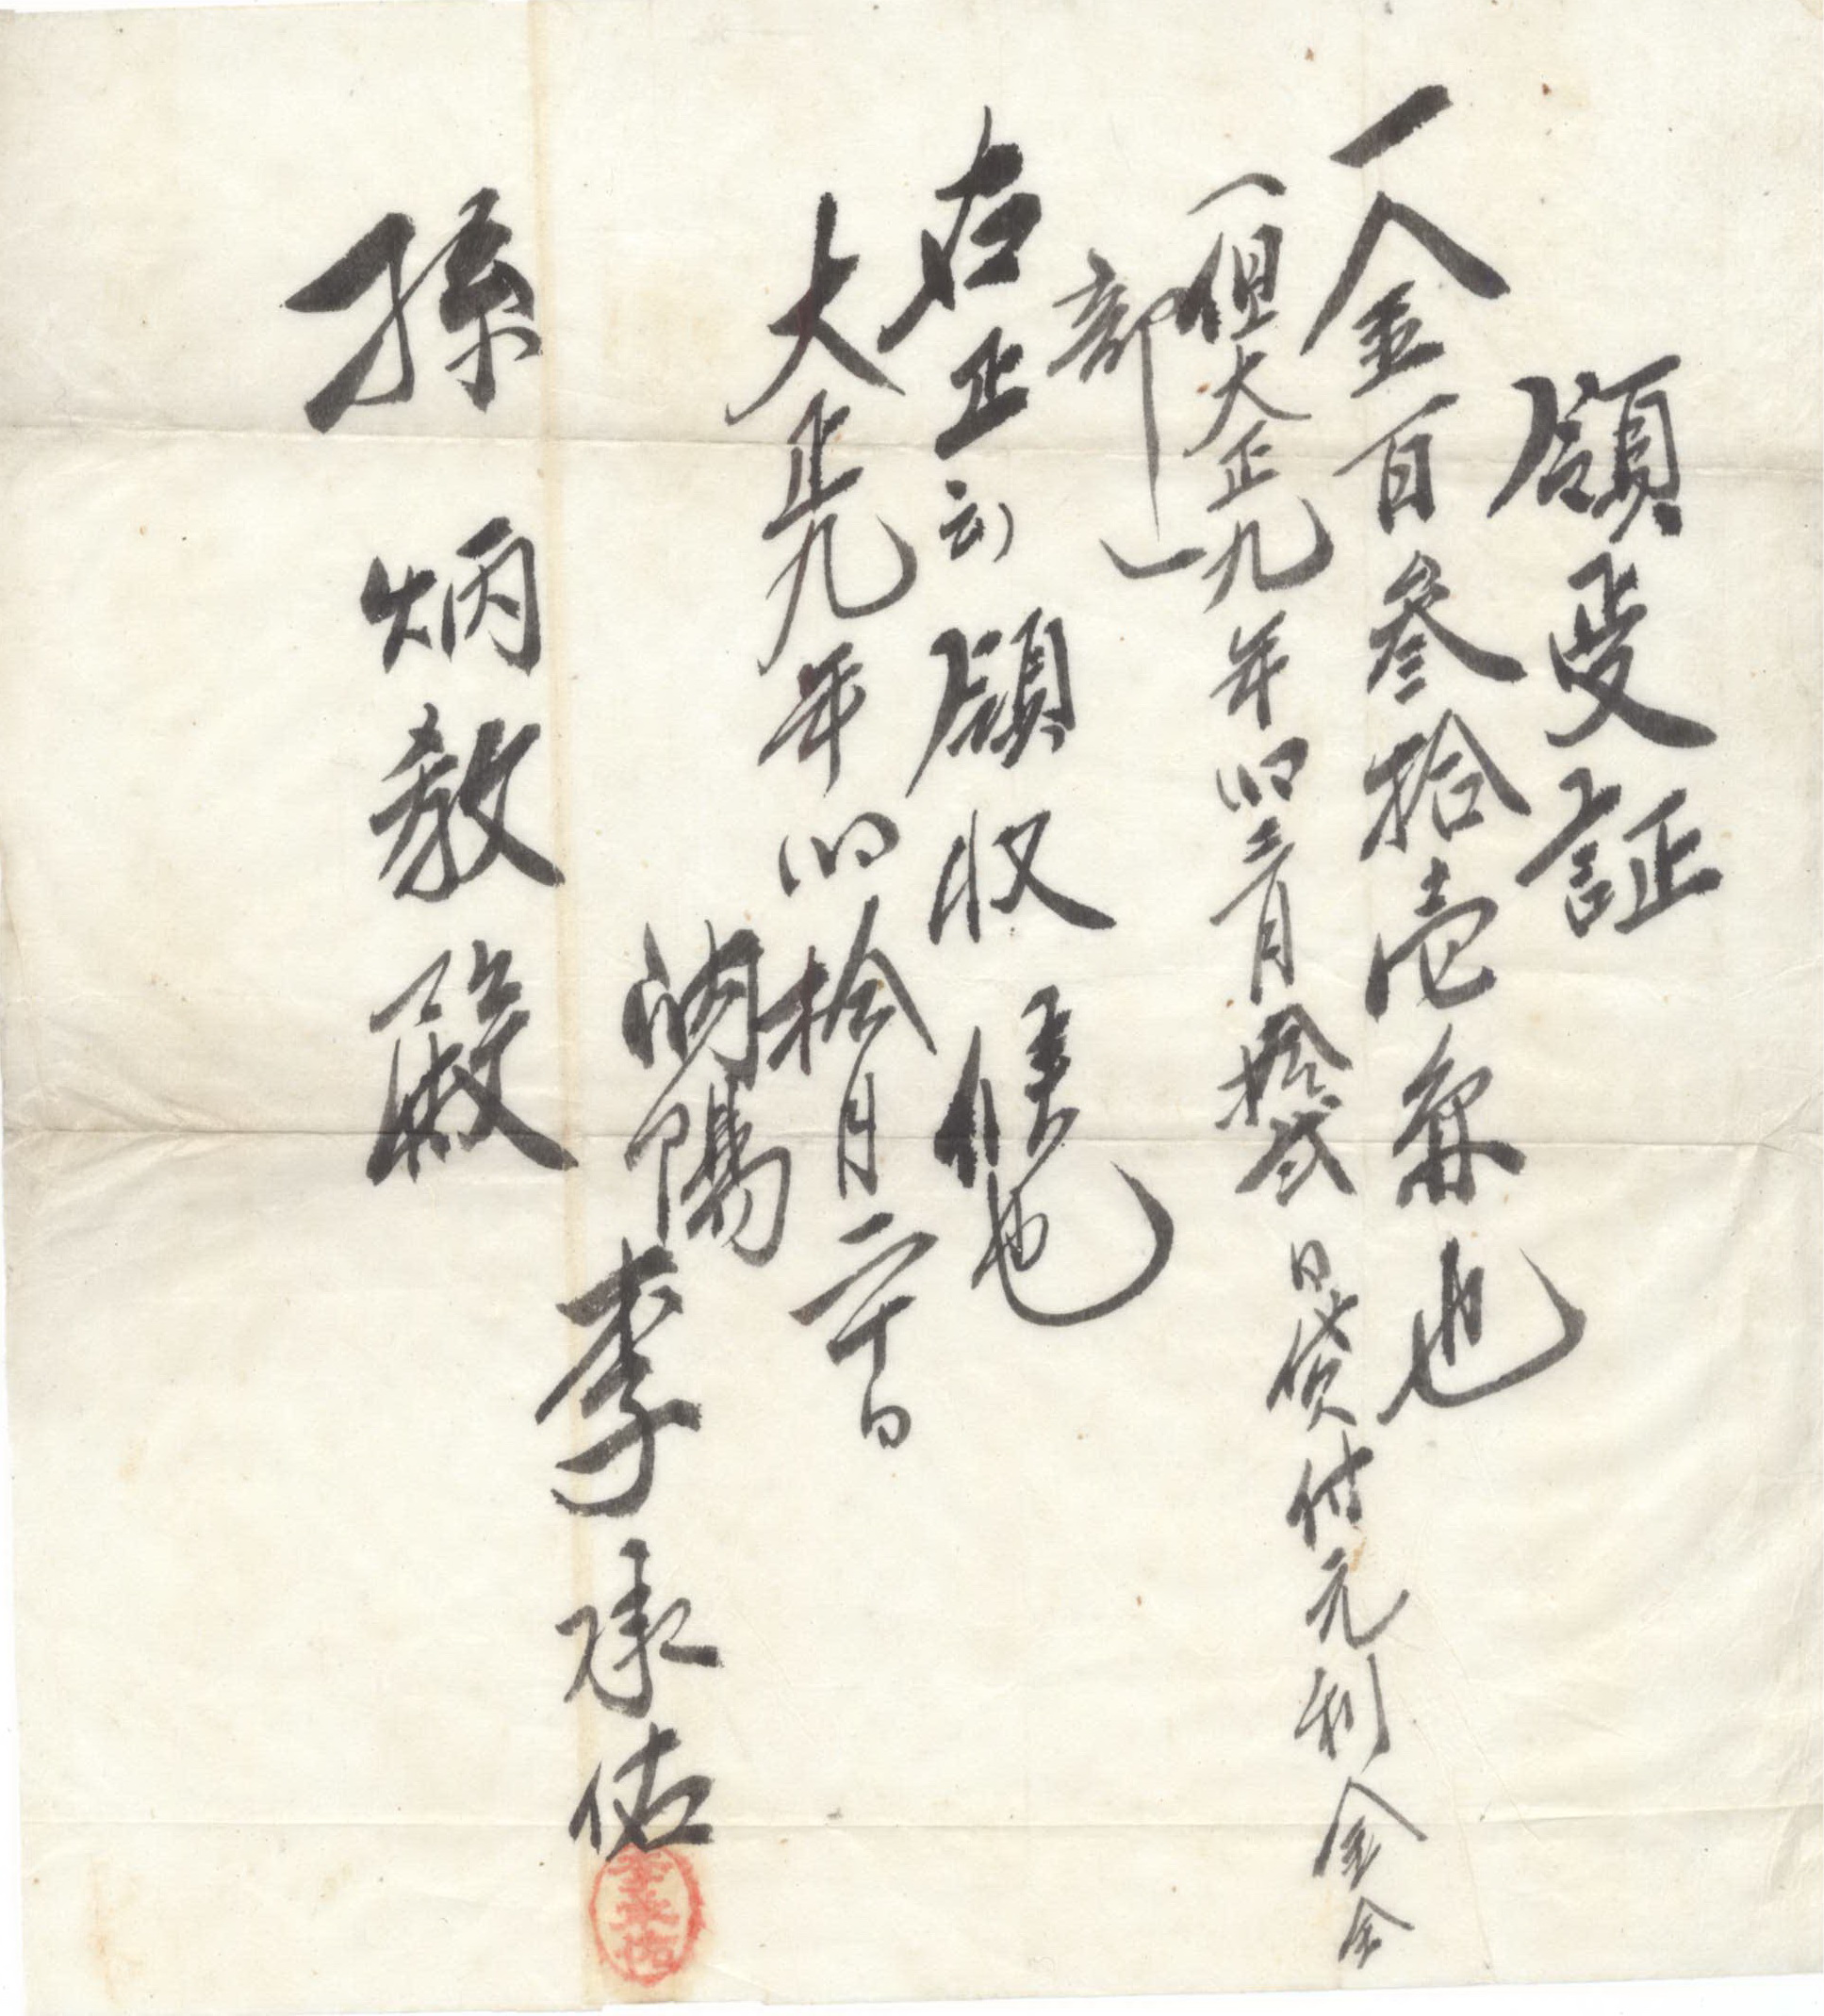 領受証
一金百参拾壱圓也
一但大正九年旧二月拾弐日貸付元利金全
部
右正ニ領収候也
大正九年旧拾月二十日
汭陽 李承佑
孫炳教殿
李承佑